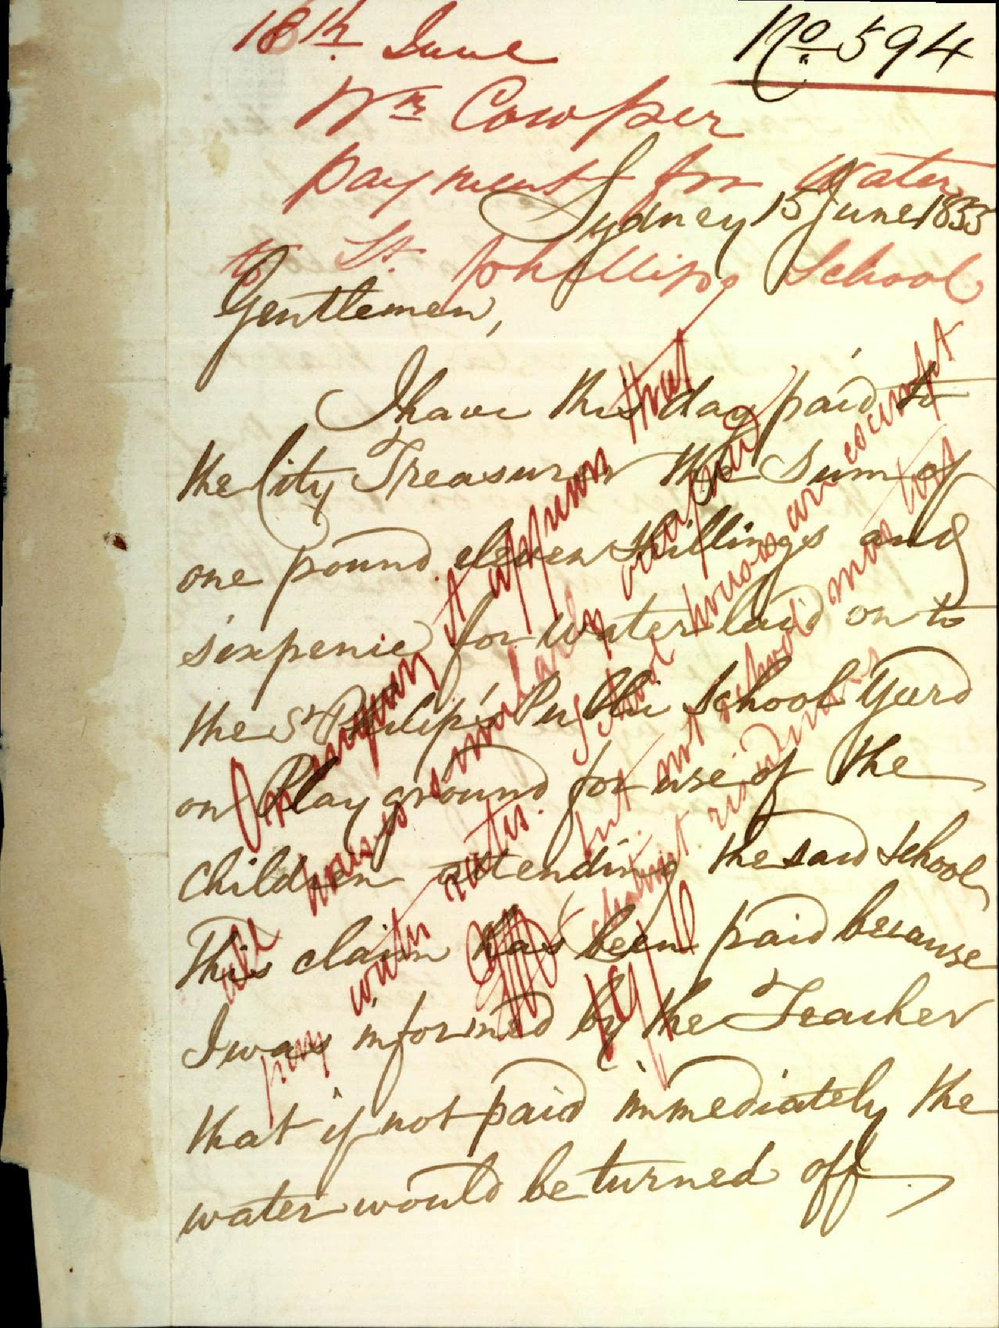 18th June
No. 594
Wm Cowper
payment for Water
to St. Phillips School
Sydney 15 June 1855
Gentlemen,
I have this day paid to
the City Treasurer the Sum of
one pound eleven Shillings and
sixpence for water laid on to
the St Philip's Public School Yard
on Play ground for use of the
children attending the said School,
This claim has been paid because
I was informed by the Teacher
that if not paid immediately the
water would be turned off
On inquiry it appears that
all houses similarly situated
pay water rates. School houses are exempt
but not school
residences
19/6/55